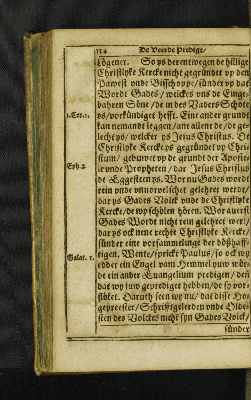 134 De Veerde Predige/
Lögener. So ys derentwegen de hillige
Christlyke Kercke nicht gegründet vp den
Pawest vnde Bisschoppe/ sünder vp dat
Wordt Gades/ welckes vns de Einge-
bahren Söne/ de in des Vaders Schote
ys/ vorkündiget hefft. Eine ander grundt
1.Cor.3. kan nemandt leggen/ ane allene de/ de ge-
lecht ys/ welcker ys Jesus Christus. De
Christlyke Kercke ys gegründet vp Chri-
stum/ gebuwet vp de grundt der Aposte-
Eph.2. le vnde Propheten/ dar Jesus Christus
de Eggesteen ys. Wor nu Gades wordt
rein vnde vnvorvelschet gelehret werdt/
dar ys Gades Volck vnde de Christlyke
Kercke/ de wy schölen hören. Wor auerst
Gades Wordt nicht rein gelehret wert/
dar ys ock nene rechte Christlyke Kercke/
sünder eine vorsammelinge der bößhaff-
tigen. Wente/ sprickt Paulus/ so ock wy
Galat. 1. edder ein Engel vam Hemmel yuw wör-
de ein ander Euangelium predigen/ den
dat wy juw geprediget hebben/ de sy vor-
flöket. Daruth seen wy nu/ dat disse Ho-
gepreester/ Schrifftgelerden vnde Olde-
sten des Volckes nicht syn Gades Volck/
sünder